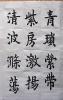 青瑣紫帶
紫房激揚
清波滌蕩